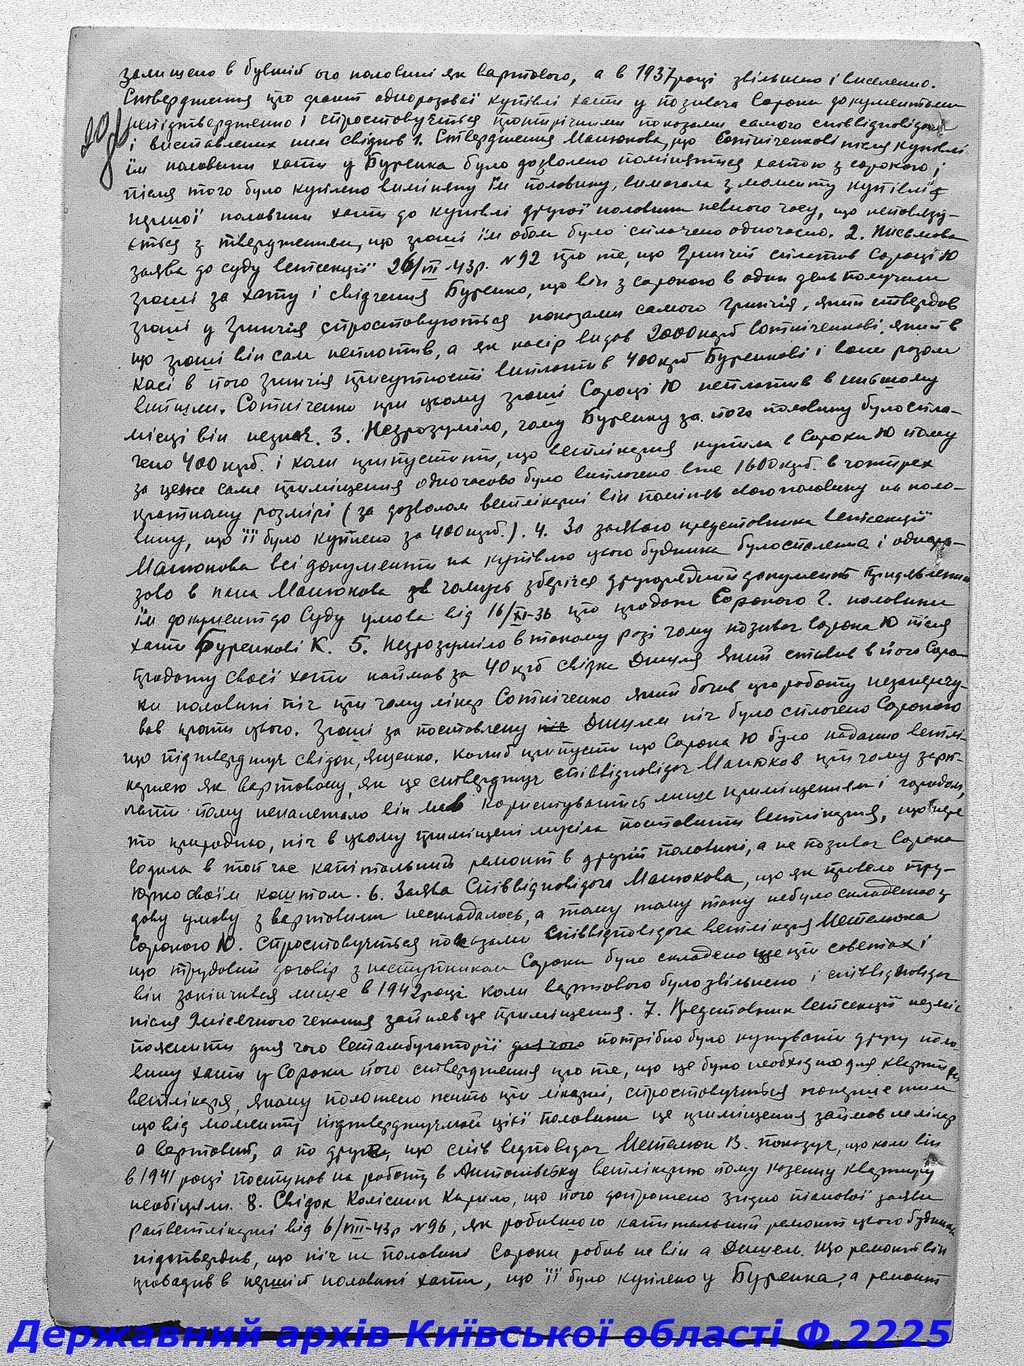 залишено в бувшій его половині як вартового, а в 1937 році звільнено і виселено.
Ствердження про факт одноразової купівлі хати у позивача Сороки документами
непідтвердженно і спростовується протирічними показами самого співвідповідача
і виставлених ним свідків 1. Ствердження Манюкова, що Сотніченкові після купівлі
їм половини хати у Буренка було дозволено помінятися хатою з сорокою, і
після того було куплено виміняну їм половину, вимагала з моменту купівлі
першої половини хати до купівлі другої половини певного часу, що неповязу-
ється з твердженням, що гроші їм обом було сплачено одночасно. 2. Письмова
заява до суду ветсекції 26/VII-43р. №92 про те, що Гринчій сплатив Сороці Ю
гроші за хату і свідчення Буренко, що він з сорокою в один день получили
гроші у Гринчія спростовуються показами самого Гринчія, який ствердив
що гроші він сам неплотив, а як касір видав 2000 крб Сотніченкові, який в
касі в його Гринчія присутності виплотив 400 крб Буренкові і вони разом
вийшли. Сотніченко при цьому гроші Сороці Ю неплотив в иньшому
місці він незнає. 3. Незрозуміло, чому Буренку за його половину було спла-
чено 400 крб. і коли припустити, що ветлікарня купила в Сороки Ю тому
за це же саме приміщення одночасово було виплочено вже 1600 крб. в чотирех
кратному розмірі (за дозволом ветлікарні він поміняв свою половину на поло-
вину, що її було куплено за 400 крб.). 4. За заявою представника ветсекції
Манюкова всі документи на купівлю цього будинка було спалено і однора-
зово в пана Манюкова чомусь зберігся другорядний документ пред'явлений
їм документ до Суду умова від 16/XI-36 про продаж Сорокою Г. половини
хати Буренкові К. 5. Незрозуміло в такому разі чому позивач Сорока Ю після
продажу своєї хати наймав за 40 крб свідка Дищля який ставив в його Соро-
ки половині піч при чому лікар Сотніченко який бачив цю роботу незапере­чу-
вав проти цього. Гроші за поставлену піч Дищлем піч було сплочено Сорокою
що підтверджує свідок, Яценко. Колиб припусти що Сорока Ю було надано ветлі-
карнею як вартовому, як це стверджує співвідповідач Манюков при чому зарп-
лати тому неналежало він мав користуватись лише приміщенням і городом,
то природньо, піч в цьому приміщені мусіла поставити ветлікарня, що пере
водила в той час капітальний ремонт в другій половині, а не позивач Сорока
Юрко своїм коштом. 6. Заява Співвідповідача Манюкова, що як правело тру-
дову умову з вартовим нескладалось, а тому тому таку небуло складенно з
Сорокою Ю. Спростовується показами Співвідповідача ветлікаря Метелюка
що трудовий договір з наступником Сороки було складено ще при советах і
він закінчився лише в 1942 році коли вартового було звільнено і співвідповідач
після 9 місячного чекання зайняв це приміщення. 7. Представник ветсекції незміг
пояснити для чого ветамбулаторії для чого потрібно було купувати другу поло-
вину хати у Сороки його ствердження про те, що це було необхідно для квартири
ветлікаря, якому положено жити при лікарні, спростовується
що від моменту підтверджуємої цієї половини це приміщення займав не лікар
а вартовий, а по друге, що спів відповідач Метелюк В. показує, що коли він
в 1941 році поступив на роботу в Антонівську ветлікарню тому казенну квартиру
необіцяли. 8. Свідок Колісник Кирило, що його допрошено згідно заяви
Райветлікарні від 6/VIII-43р №96, як робившого капитальний ремонт цього будинка
підствердив, що піч на половині Сороки робив не він а Дищлем. Що ремонт він
провадив в першій половині хати, що її було куплено у Буренка, а ремонт
Державний архів Київської області Ф.2225